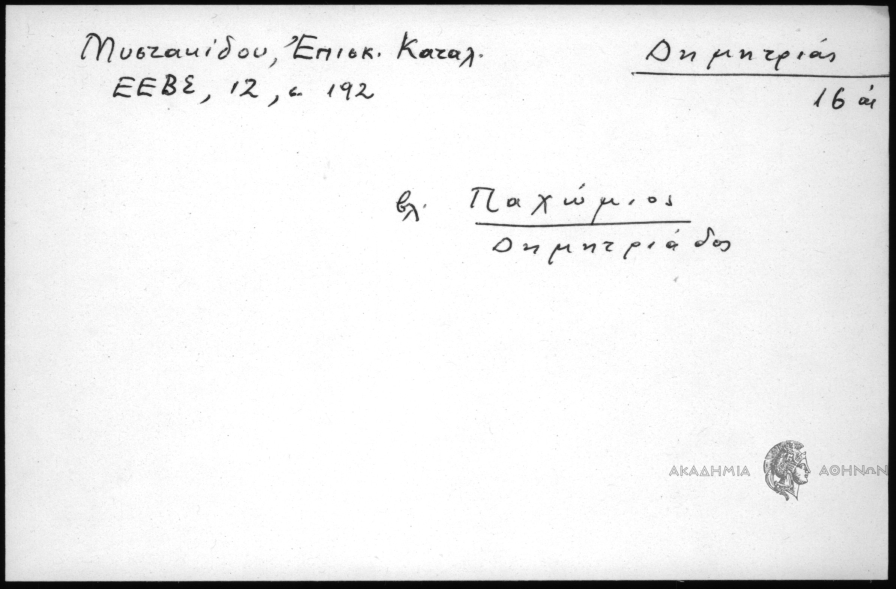 Μυστακίδου, Ἐπισκ. Καταλ.
ΕΕΒΣ, 12, σ. 192
Δημητριάς
16 αἰ
βλ. Παχώμιος
Δημητριάδος
ΑΚΑΔΗΜΙΑ ΑΘΗΝΩΝ